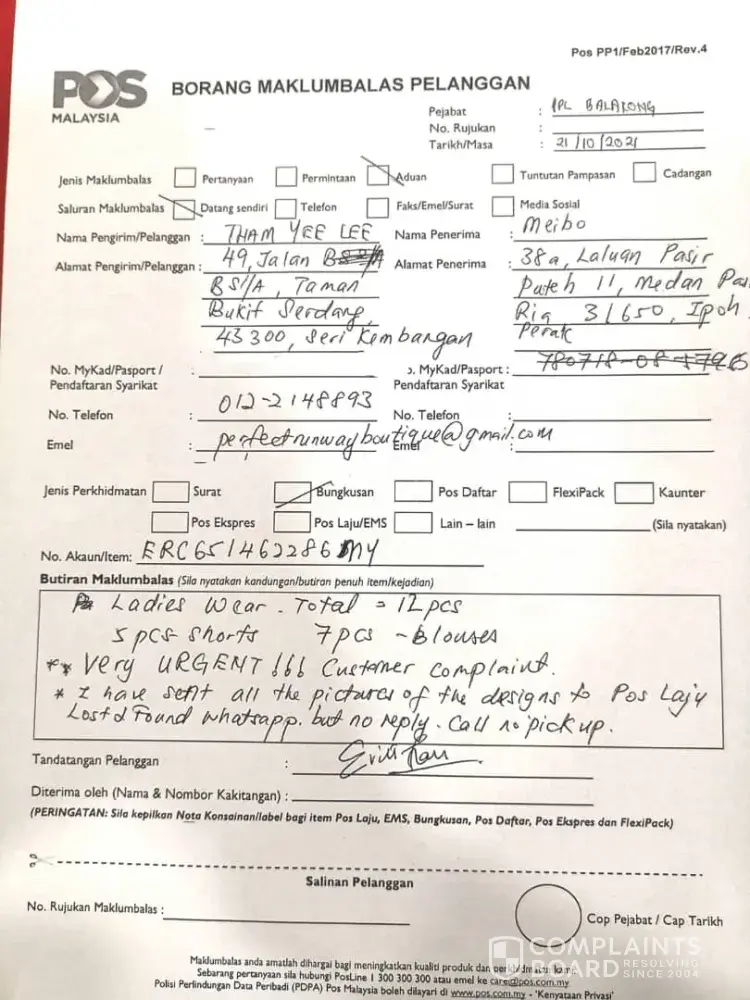 Pos PP1/Feb2017/Rev.4
POS
MALAYSIA
BORANG MAKLUMBALAS PELANGGAN
Pejabat : IPL BALAKONG
No. Rujukan :
Tarikh/Masa : 21/10/2021
Jenis Maklumbalas Pertanyaan Permintaan Aduan Tuntutan Pampasan Cadangan
Saluran Maklumbalas Datang sendiri Telefon Faks/Emel/Surat Media Sosial
Nama Pengirim/Pelanggan : THAM YEE LEE Nama Penerima : Meibo
Alamat Pengirim/Pelanggan : 49, Jalan Alamat Penerima : 38a, Laluan Pasir
BS11/A, Taman Puteh 11, Medan Pas
Bukit Serdang, Ria, 31650, Ipoh
43300, Seri Kembangan Perak
No. MyKad/Pasport / : o. MyKad/Pasport :
Pendaftaran Syarikat Pendaftaran Syarikat
No. Telefon : 012-2148893 No. Telefon :
Emel : perfectrunwayboutique@gmail.com Emel :
Jenis Perkhidmatan Surat Bungkusan Pos Daftar FlexiPack Kaunter
Pos Ekspres Pos Laju/EMS Lain – lain (Sila nyatakan)
No. Akaun/Item: ERC651462286MY
Butiran Maklumbalas (Sila nyatakan kandungan/butiran penuh item/kejadian)
Ladies Wear. Total = 12 pcs
5 pcs- Shorts 7 pcs - Blouses
** Very URGENT!!! Customer complaint.
* I have sent all the pictures of the designs to Pos Laju
Lost & Found whatsapp. but no reply. Call no pick up.
Tandatangan Pelanggan :
Diterima oleh (Nama & Nombor Kakitangan) :
(PERINGATAN: Sila kepilkan Nota Konsainan/label bagi item Pos Laju, EMS, Bungkusan, Pos Daftar, Pos Ekspres dan FlexiPack)
Salinan Pelanggan
No. Rujukan Maklumbalas :
Cop Pejabat / Cap Tarikh
COMPLAINTS
BOARD RESOLVING SINCE 2004
Maklumbalas anda amatlah dihargai bagi meningkatkan kualiti produk dan perkhidmatan kami.
Sebarang pertanyaan sila hubungi PosLine 1 300 300 300 atau emel ke care@pos.com.my
Polisi Perlindungan Data Peribadi (PDPA) Pos Malaysia boleh dilayari di www.pos.com.my - 'Kenyataan Privasi'